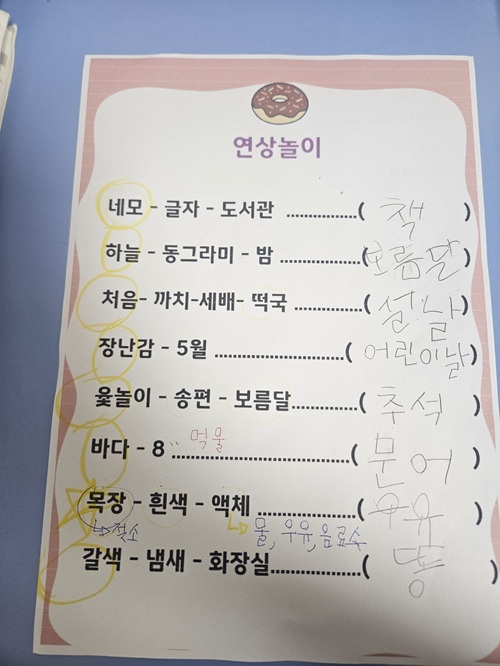 연상놀이
네모 - 글자 - 도서관 ................( 책 )
하늘 - 동그라미 - 밤 ................( 보름달 )
처음- 까치-세배- 떡국 ................( 설날 )
장난감 - 5월 ..........................( 어린이날 )
윷놀이 - 송편 - 보름달..............( 추석 )
바다 - 8 .. 먹물 ................................( 문어 )
목장 - 흰색 - 액체 ...................( 우유 )
↳ 젖소 ↳ 물, 우유, 음료수
갈색 - 냄새 - 화장실..................( 똥 )